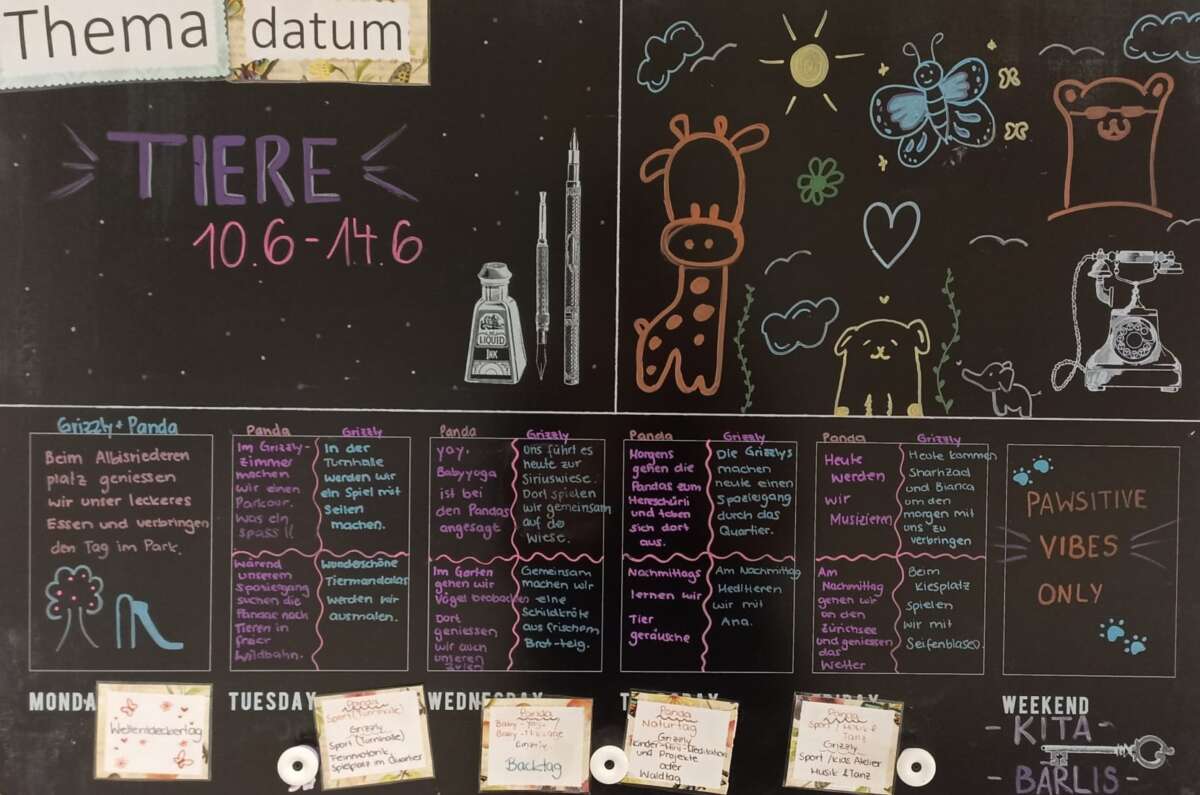 Thema
datum
TIERE
10.6-14.6
LIQUID
INK
Grizzly + Panda
Beim Albisriederen
platz geniessen
wir unser leckeres
Essen und verbringen
den Tag im Park.
MONDA
Weltentdeckertag
Panda
Im Grizzly-
zimmer
machen
wir einen
Parkour.
Was ein
spass!!
Grizzly
In der
Turnhalle
werden wir
ein Spiel mit
Seilen
machen.
Wärend
unserem
Spaziergang
suchen die
Pandas nach
Tieren in
freier
Wildbahn.
Wunderschöne
Tiermandalas
werden wir
ausmalen.
TUESDAY
Panda
Sport (Turnhalle)
Grizzly
Sport (Turnhalle)
Feinmotorik,
Spielplatz im Quartier
Panda
yay.
Babyyoga
ist bei
den Pandas
angesagt
Grizzly
Uns führt es
heute zur
Siriuswiese.
Dort spielen
wir gemeinsam
auf de
Wiese.
Im Garten
gehen wir
Vögel beobachen
Dort
geniessen
wir auch
unseren
Gemeinsam
machen wir
eine
Schildkröte
aus frischem
Brot-teig.
WEDNESDAY
Panda
Baby-Yoga/
Baby-Massage
Grizzly
Backtag
Panda
Morgens
gehen die
Pandas zum
Hereschürli
und toben
sich dort
aus.
Grizzly
Die Grizzlys
machen
heute einen
Spaziegang
durch das
Quartier.
Nachmittags
lernen wir
Tier
geräusche
Am Nachmittag
Meditieren
wir mit
Ana.
Panda
Naturtag
Grizzly
Kinder-Mini-Meditation
und Projekte
oder
Waldtag
Panda
Heute
werden
wir
Musizieren
Grizzly
Heute kommen
Sharhzad
und Bianca
um den
morgen mit
uns zu
verbringen
Am
Nachmittag
gehen wir
an den
Zürichsee
und geniessen
das
Wetter
Beim
Kiesplatz
spielen
wir mit
Seifenblasen
Panda
Sport / Musik &
Tanz
Grizzly
Sport / Kids Atelier
Musik & Tanz
PAWSITIVE
VIBES
ONLY
WEEKEND
-KITA-
BÄRLIS-